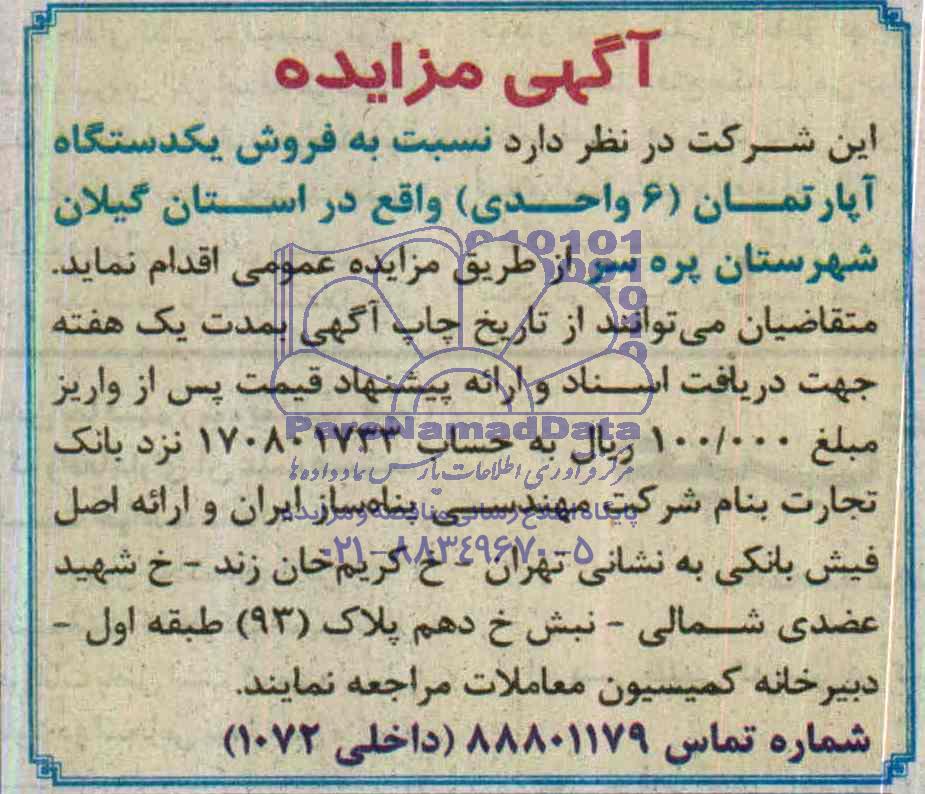 آگهی مزایده
این شرکت در نظر دارد نسبت به فروش یکدستگاه
آپارتمان (۶ واحدی) واقع در استان گیلان
شهرستان پره سر از طریق مزایده عمومی اقدام نماید.
متقاضیان می‌توانند از تاریخ چاپ آگهی بمدت یک هفته
جهت دریافت اسناد و ارائه پیشنهاد قیمت پس از واریز
مبلغ ۱۰۰/۰۰۰ ریال به حساب ۱۷۰۸۰۱۷۳۳ نزد بانک
ParsNamadData
مرکز فرآوری اطلاعات پارس نماد داده ها
تجارت بنام شرکت مهندسی پناه‌ساز ایران و ارائه اصل
پایگاه اطلاع رسانی مناقصه و مزایده
۰۲۱-۸۸۳۴۹۶۷۰-۵
فیش بانکی به نشانی تهران - خ کریم‌خان زند - خ شهید
عضدی شمالی - نبش خ دهم پلاک (۹۳) طبقه اول -
دبیرخانه کمیسیون معاملات مراجعه نمایند.
شماره تماس ۸۸۸۰۱۱۷۹ (داخلی ۱۰۷۲)